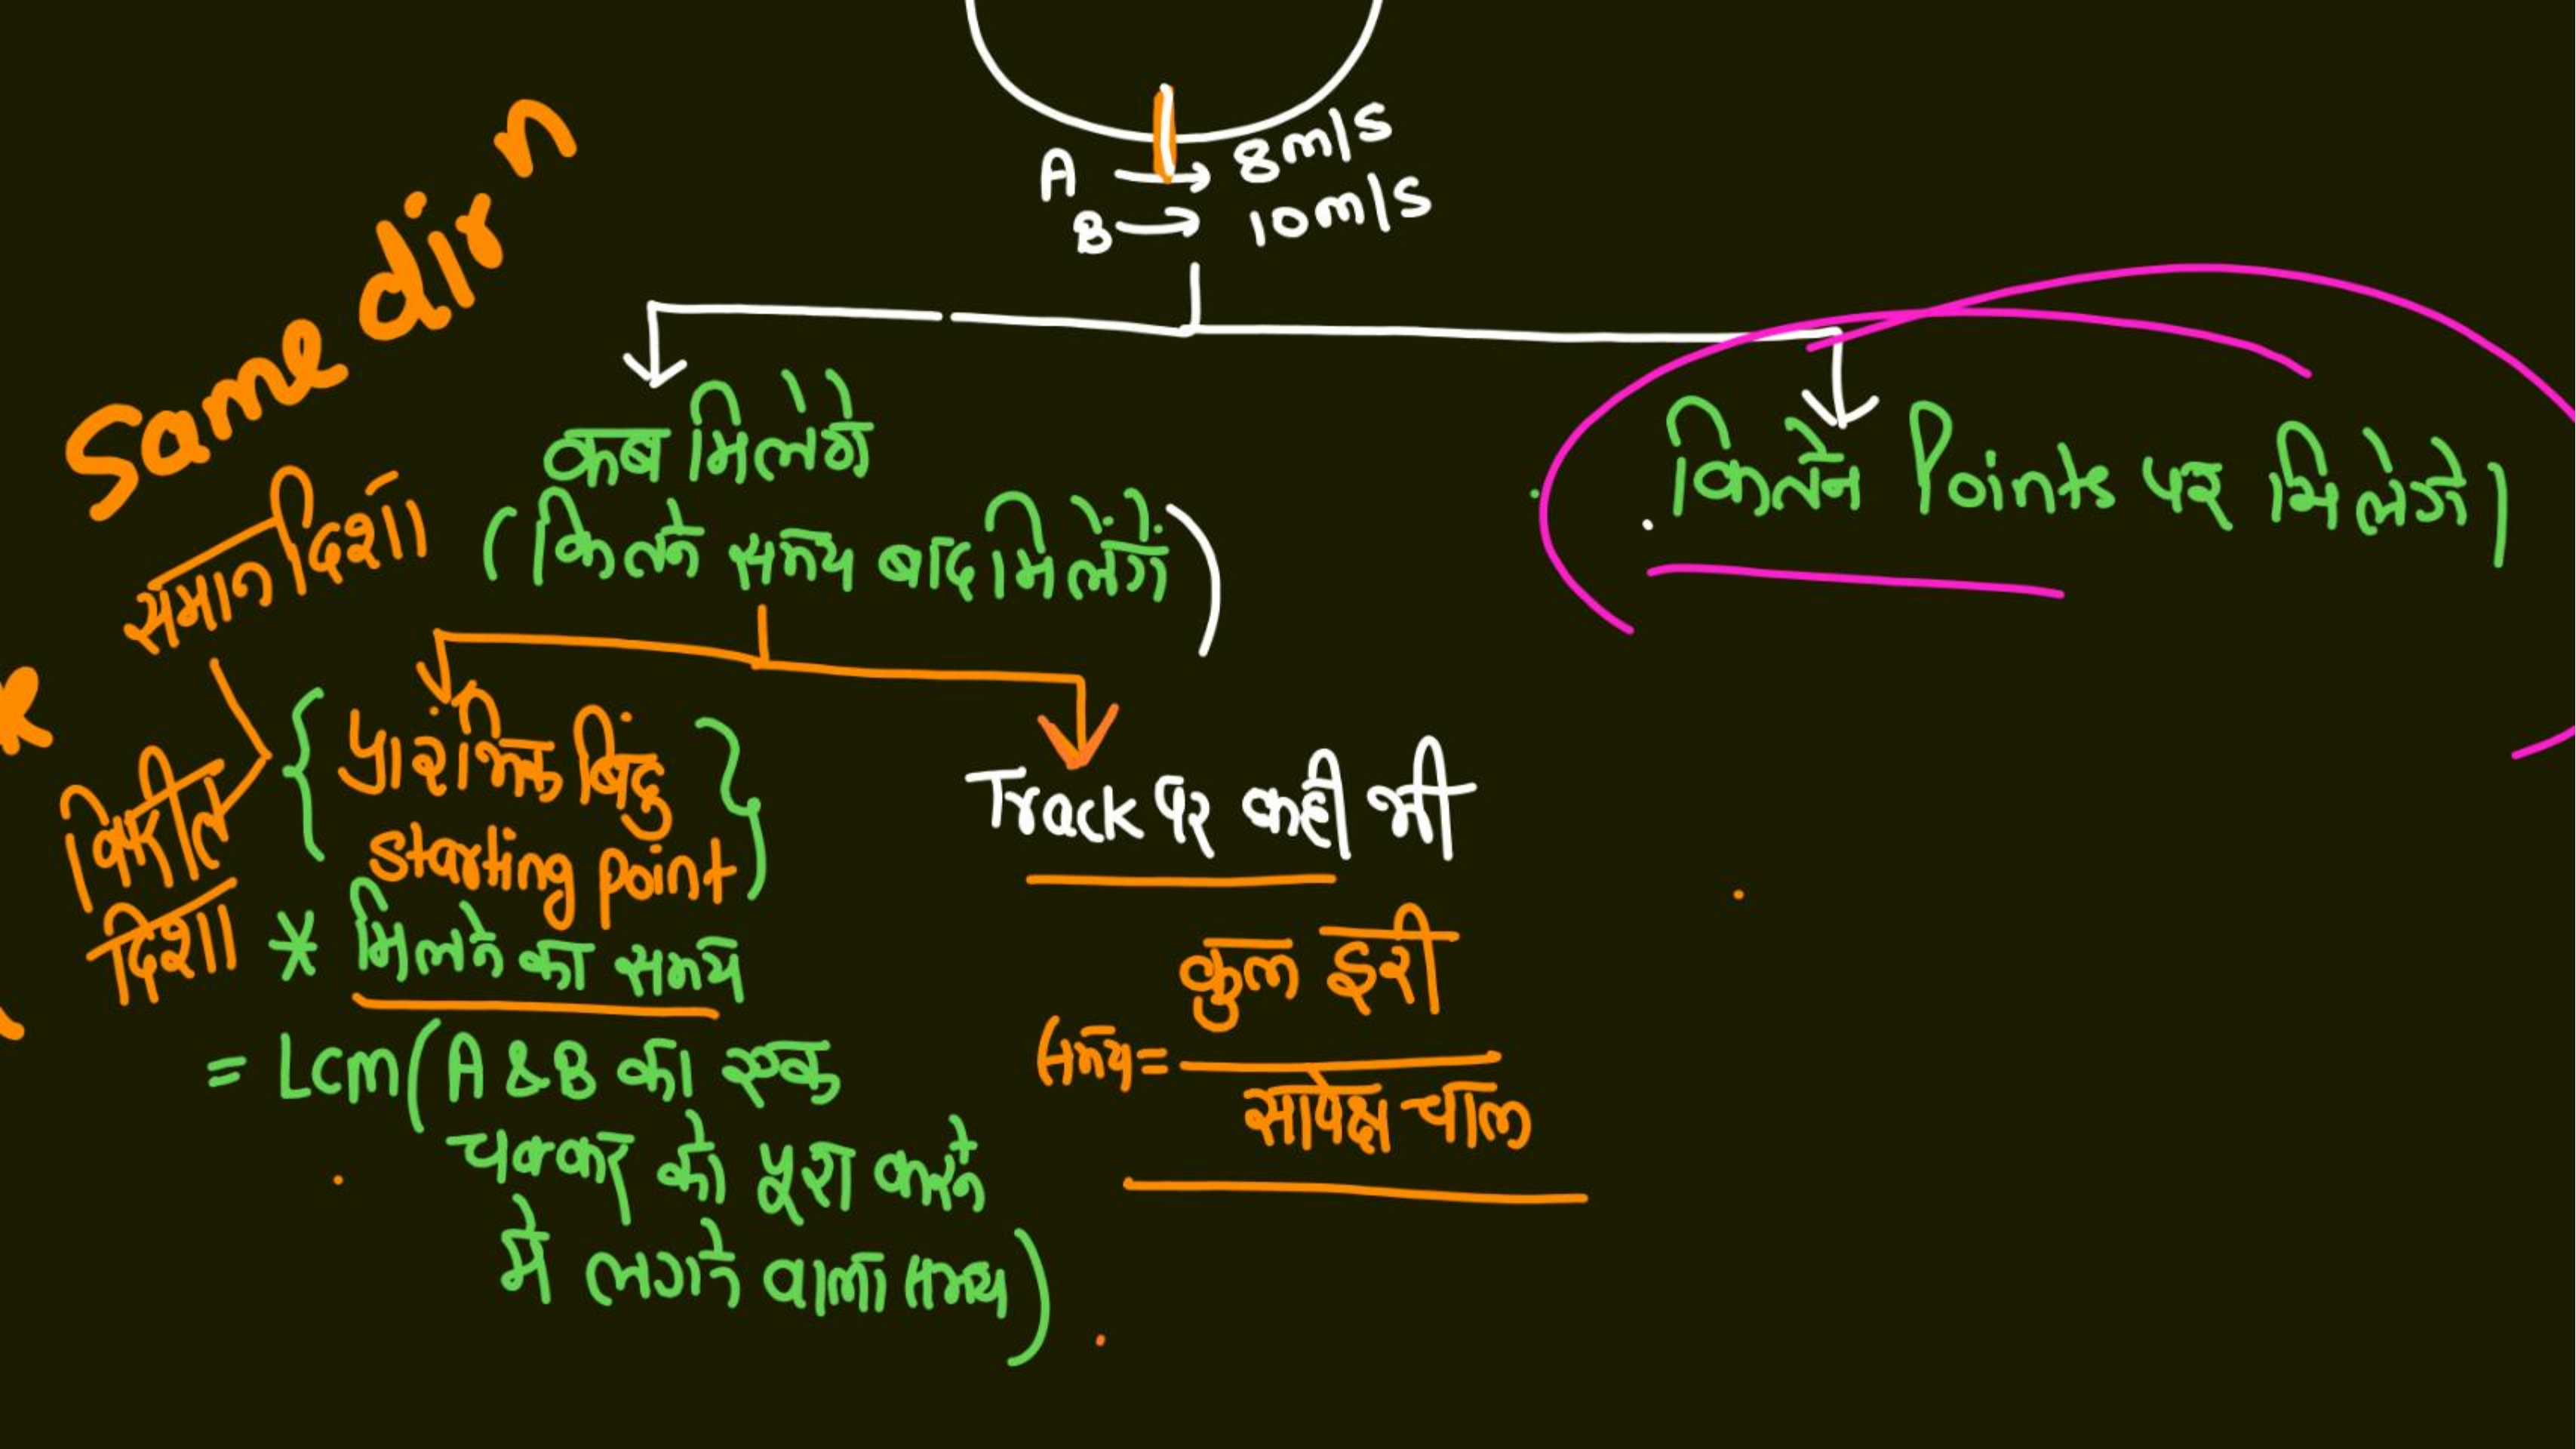 A → 8m/s
B → 10m/s
Same dirn
समान दिशा
विपरीत
दिशा
कब मिलेंगे
(कितने समय बाद मिलेंगे)
कितने Points पर मिलेगे)
{प्रारंभिक बिंदु
Starting point}
* मिलने का समय
= Lcm(A & B का एक
चक्कर को पूरा करने
में लगने वाला समय)
Track पर कही भी
समय = कुल दूरी
सापेक्ष चाल